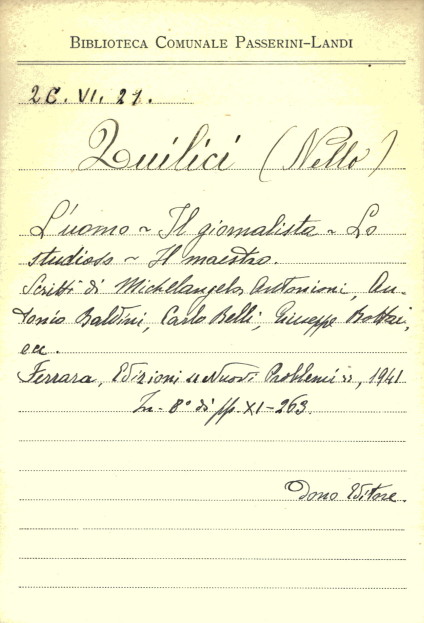 BIBLIOTECA COMUNALE PASSERINI-LANDI
2C. VI. 21.
Quilici (Nello)
L'uomo ~ Il giornalista ~ Lo
studioso ~ Il maestro.
Scritti di Michelangelo Antonioni, An-
tonio Baldini, Carlo Belli, Giuseppe Bottai,
ecc.
Ferrara, Edizioni « Nuovi Problemi », 1941
In-8° di pp. XI-263.
Dono Editore.